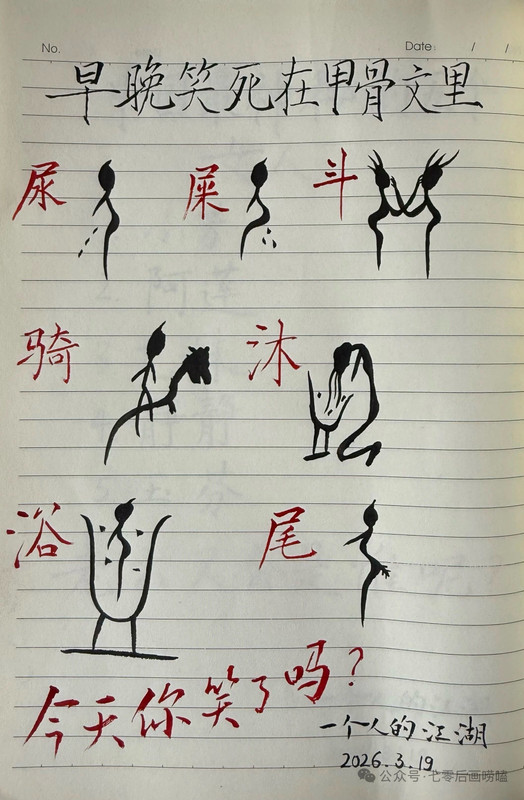 No.
Date / /
早晚笑死在甲骨文里
尿 屎 斗
骑 沐
浴 尾
今天你笑了吗?
一个人的江湖
2026.3.19
公众号·七零后画唠嗑